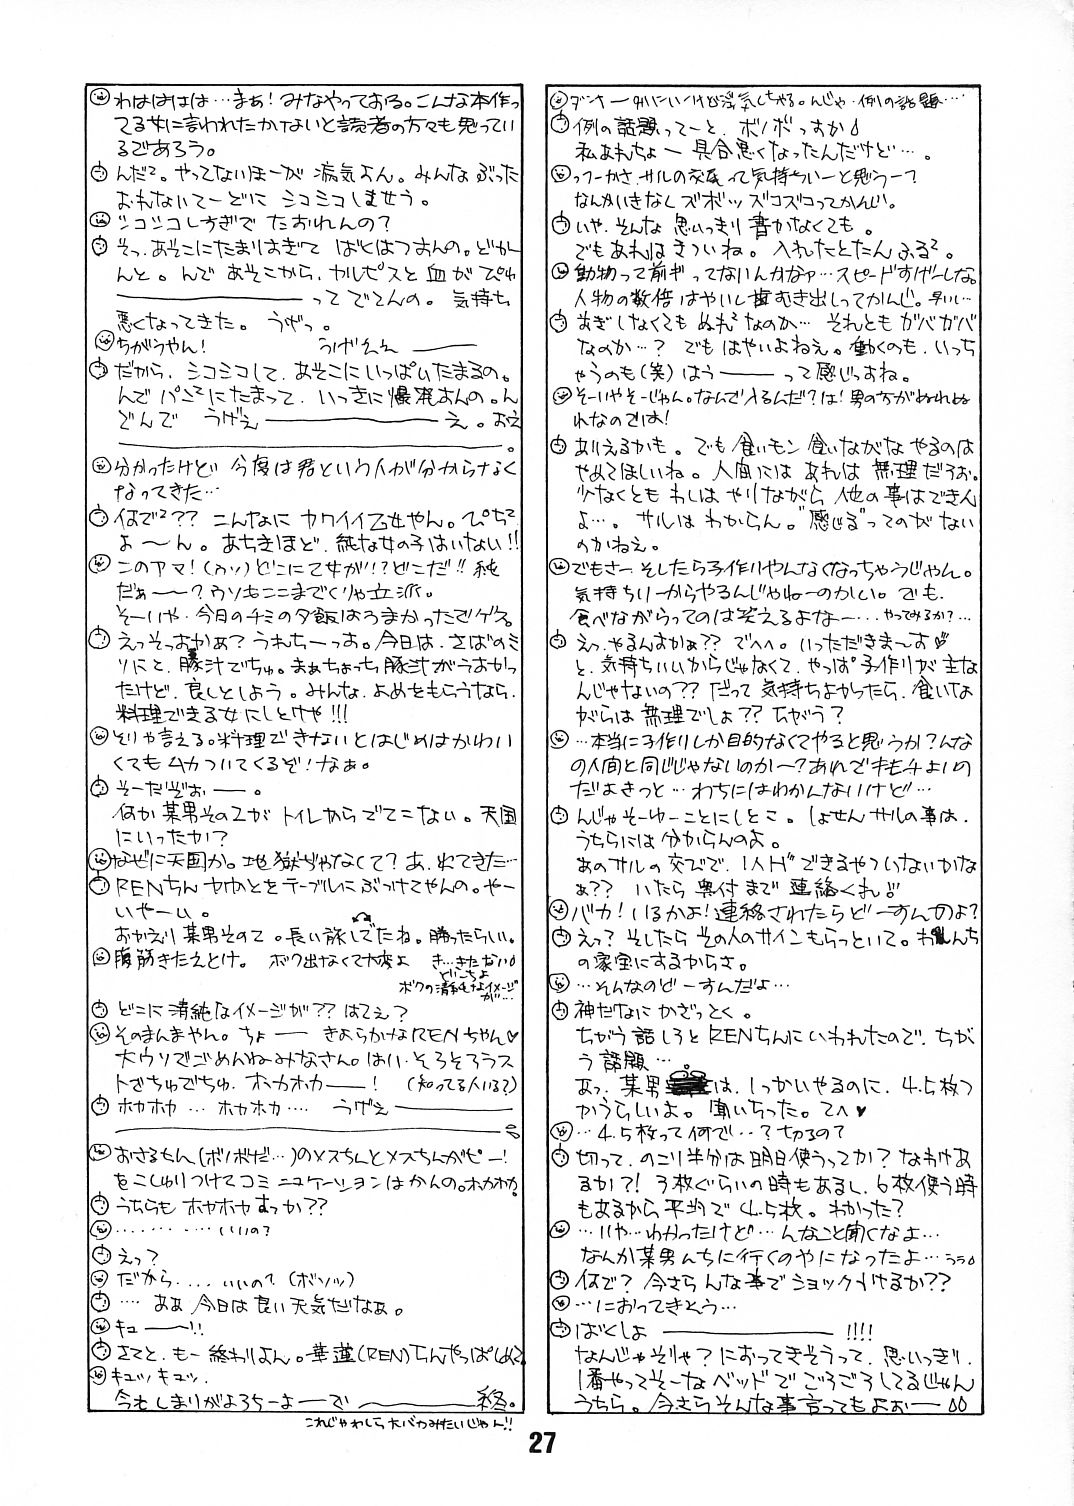 ダンナ一例にいくけど浮気しちゃる。んじゃ例の話題…
例の話題ってーと、ボノボっすか
私おれちょー具合悪くなったんだけど…。
っつーかさ、サルの交尾って気持ちいーと思うー?
なんかいきなしズボッズコズコってかんじ。
いや、そんな思いっきり書かなくても。
でもあれはきついね。入れたとたんふる²。
動物って前ギってないんかなァ…スピードすげーしな。
人物の数倍はやいし歯むき出しってかんじ。早いし…
まぎしなくてもぬれ²なのか…それともガバガバ
なのか…?でもはやいよねえ。働くのも、いっち
ゃうのも(笑)はうーーって感じっすね。
そーいやそーじゃん。なんで入るんだ?は!男の方がぬれぬ
れなのでは!
ありえるかも。でも食いモン食いながなやるのは
やめてほしいね。人間にはあれは無理だろお。
少なくともわしはやりながら他の事はできん
よ…。サルはわからん。"感じる"ってのがない
のかねえ。
でもさー、そしたら子作りやんなくなっちゃうじゃん。
気持ちいーからやるんじゃねーのかい。でも、
食べながらってのは笑えるよなー…やってみるか?…
えっ、やるんすかぁ??でへへ。いっただきまーす♡
と、気持ちいいからじゃなくて、やっぱ子作りが主な
んじゃないの??だって気持ちよかったら、食いな
がらは無理でしょ??ちがう?
…本当に子作りしか目的なくてやると思うか?んな
の人間と同じじゃないのか〜?あれでキモチよいの
だよきっと…わちにはわかんないけど…
んじゃそーゆーことにしとこ。しょせんサルの事は、
うちらには分からんのよ。
あのサルの交びで、1人Hできるやついないかな
ぁ??いたら奥付まで連絡くれ!!
バカ!いるかよ!連絡されたらどーすんのよ?
えっ?そしたらその人のサインもらっといて。わしんち
の家宝にするからさ。
…そんなのどーすんだよ…
神だなにかざっとく。
ちがう話しろとRENちんにいわれたので、ちが
う話題…
あっ、某男は、1っかいやるのに、4.5枚つ
かうらしいよ。聞いちった。てへ♥
…4.5枚って何で…?切るの?
切って、のこり半分は明日使うってか?なわけあ
るか?!3枚ぐらいの時もあるし、6枚使う時
もあるから平均で4.5枚。わかった?
…いや…わかったけど…んなこと聞くなよ…
なんか某男んちに行くのやになったよ…うううo
何で?今さらんな事でショックうけるか??
…におってきそう…
ばくしょーー!!!!
なんじゃそりゃ?におってきそうって、思いっきり、
1番やってそーなベッドでごろごろしてるじゃん
うちら。今さらそんな事言ってもよおー
わはははは…まぁ!みなやっておる。こんな本作っ
てる女に言われたかねないと読者の方々も思ってい
るであろう。
んだ²。やってないほーが病気よん。みんなぶった
おれないてーどにシコシコしませう。
シコシコしすぎでたおれんの?
そっ、あそこにたまりすぎてばくはつすんの。どか
んと。んであそこから、カルピスと血がぴゅ
ーーってでてんの。気持ち
悪くなってきた。うげっ。
ちがうやん!うげええーー
だから、シコシコして、あそこにいっぱいたまるの。
んでパン²にたまって、いっきに爆発すんの。ん
どんでうげえーーえ。おえ
ーー。
分かったけど今度は君という人が分からなく
なってきた…
何で²??こんなにカワイイ乙女やん。ぴち²
よ〜ん。あちきほど、純な女の子はいない!!
このアマ!(ウソ)どこに乙女が!?どこだ!!純
だぁ〜?ウソもここまでくりゃ立派。
そーいや、今日のチミの夕飯はうまかったでゲス。
えっそっすかぁ?うれちーっす。今日は、さばのミ
ソにと、豚汁でちゅ。まぁちょっち豚汁がうすかっ
たけど、良しとしよう。みんな、よめをもらうなら、
料理できる女にしとけや!!!
そりゃ言える。料理できないとはじめはかわい
くてもムカついてくるぞ!なぁ。
そーだぞぉー。
何か某男その2がトイレからでてこない。天国
にいったか?
なぜに天国か。地獄ぢゃなくて?あ、でてきた…
RENちんヤカンとをテーブルにぶつけてやんの。やー
いやーい。
おかえり某男その2。長い旅してたね。勝ったらしい。
腹筋きたえとけ。ボク出なくて大変よ き…きたない
どこちよ
ボクの清純なイメージ
が…
どこに清純なイメージが??はてえ?
そのまんまやん。ちょーーきよらかなRENちゃん♥
大ウソでごめんねみなさん。はい、そろそろラス
トでちゅでちゅ、ホーカホカーー!(知ってる人いる?)
ホカホカ…ホカホカ…うげえーー
おさるちん(ボノボだ…)のメスちんとメスちんがピー!
をこしゅりつけてコミュニケーションはかんの。ホカホカ。
うちらもホカホカすっか??
…………いいの?
えっ?
だから……いいの?(ボソッ)
…あぁ今日は良い天気だなぁ。
キューー!!
さてと、もー終わりよん。華蓮(REN)ちんやっぱしめて
キュッキュッ。
今もしまりがよろちーよーーでーー終。
これじゃわしら大バカみたいじゃん!!
27